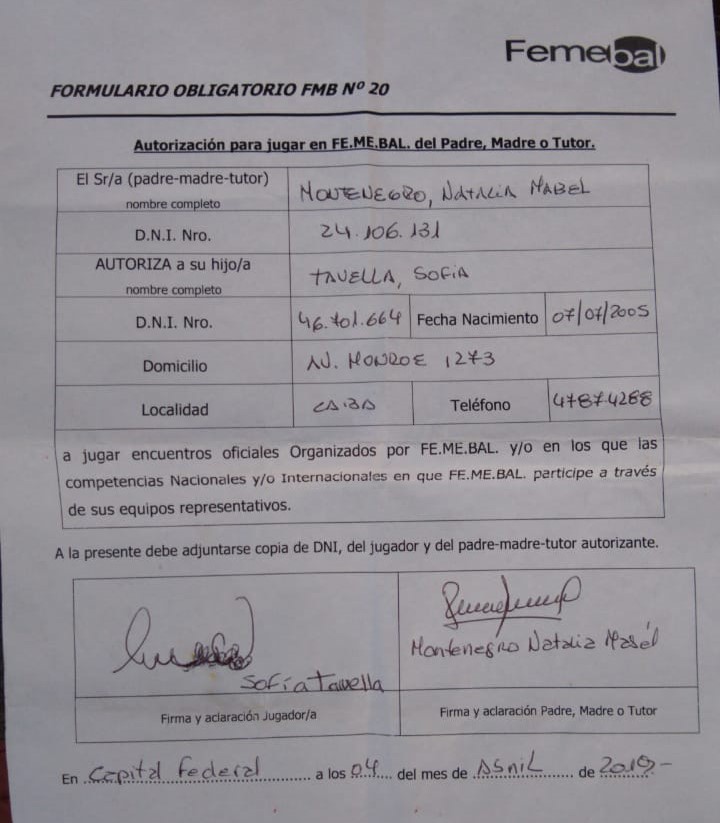 Femebal
FORMULARIO OBLIGATORIO FMB Nº 20
Autorización para jugar en FE.ME.BAL. del Padre, Madre o Tutor.
El Sr/a (padre-madre-tutor) MONTENEGRO, NATALIA MABEL
nombre completo
D.N.I. Nro. 24.106.131
AUTORIZA a su hijo/a TAVELLA, SOFIA
nombre completo
D.N.I. Nro. 46.701.664 Fecha Nacimiento 07/07/2005
Domicilio AV. MONROE 1273
Localidad CABA Teléfono 47874288
a jugar encuentros oficiales Organizados por FE.ME.BAL. y/o en los que las
competencias Nacionales y/o Internacionales en que FE.ME.BAL. participe a través
de sus equipos representativos.
A la presente debe adjuntarse copia de DNI, del jugador y del padre-madre-tutor autorizante.
Sofía Tavella
Montenegro Natalia Mabel
Firma y aclaración Jugador/a
Firma y aclaración Padre, Madre o Tutor
En Capital Federal a los 04 del mes de Abril de 2019.-